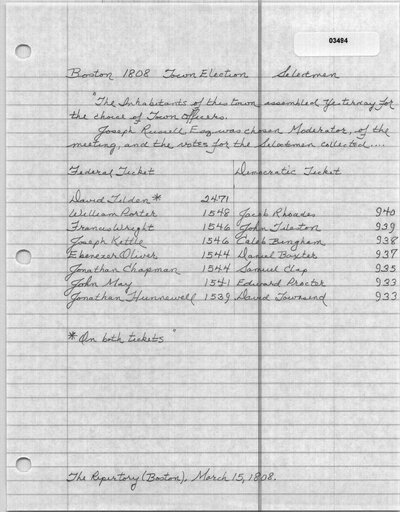 03494
Boston 1808 Town Election Selectmen
"The Inhabitants of this town assembled yesterday for
the choice of Town Officers.
Joseph Russell Esq was chosen Moderator, of the
meeting, and the votes for the Selectmen collected....
Federal Ticket Democratic Ticket
David Tilden* 2471
William Porter 1548 Jacob Rhoades 940
Francis Wright 1546 John Tileston 939
Joseph Kettle 1546 Caleb Bingham 938
Ebenezer Oliver 1544 Daniel Baxter 937
Jonathan Chapman 1544 Samuel Clap 935
John May 1541 Edward Proctor 933
Jonathan Hunnewell 1539 David Townsend 933
*On both tickets"
The Repertory (Boston), March 15, 1808.